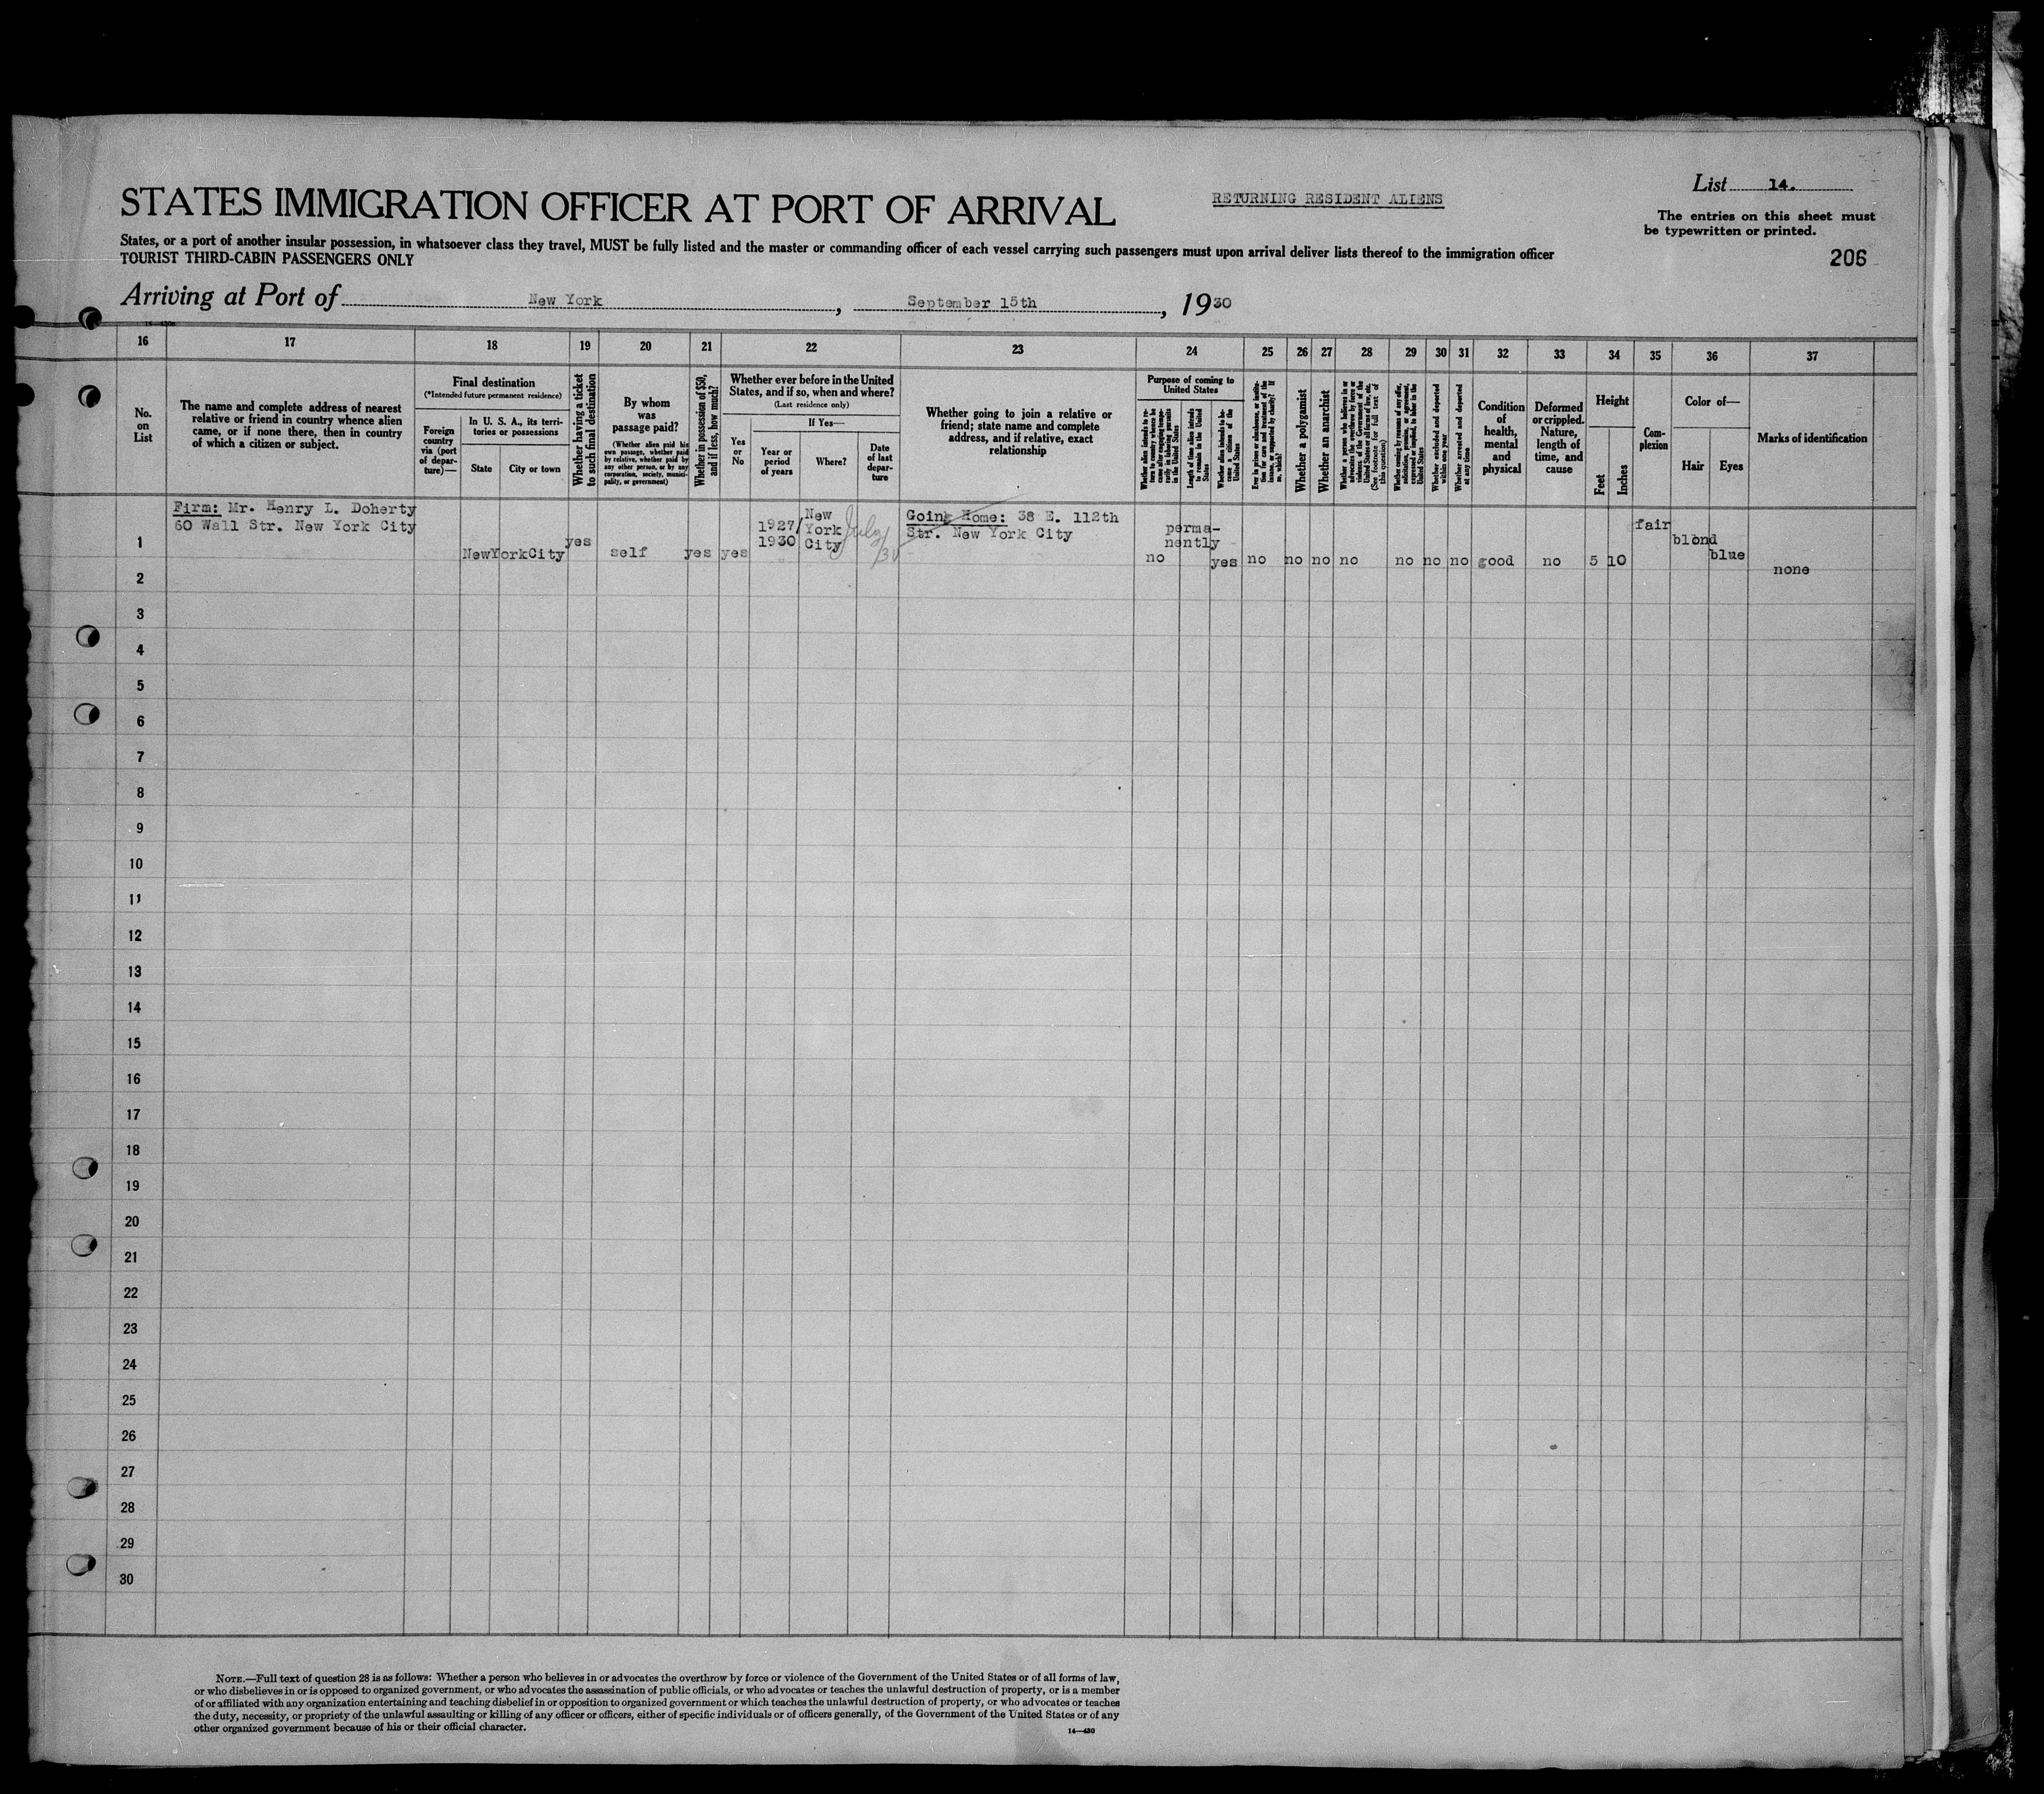 List 14.
RETURNING RESIDENT ALIENS
STATES IMMIGRATION OFFICER AT PORT OF ARRIVAL
The entries on this sheet must
be typewritten or printed.
States, or a port of another insular possession, in whatsoever class they travel, MUST be fully listed and the master or commanding officer of each vessel carrying such passengers must upon arrival deliver lists thereof to the immigration officer
TOURIST THIRD-CABIN PASSENGERS ONLY
206
Arriving at Port of New York, September 15th, 1930
16 17 18 19 20 21 22 23 24 25 26 27 28 29 30 31 32 33 34 35 36 37
No.
on
List
The name and complete address of nearest
relative or friend in country whence alien
came, or if none there, then in country
of which a citizen or subject.
Final destination
(*Intended future permanent residence)
Foreign
country
via (port
of depar-
ture)—
In U. S. A., its terri-
tories or possessions
State
City or town
Whether having a ticket
to such final destination
By whom
was
passage paid?
(Whether alien paid his
own passage, whether paid
by relative, whether paid by
any other person, or by any
corporation, society, munici-
pality, or government)
Whether in possession of $50,
and if less, how much?
Whether ever before in the United
States, and if so, when and where?
(Last residence only)
Yes
or
No
If Yes—
Year or
period
of years
Where?
Date
of last
depar-
ture
Whether going to join a relative or
friend; state name and complete
address, and if relative, exact
relationship
Purpose of coming to
United States
Whether alien intends to re-
turn to country whence he
came after engaging tempo-
rarily in laboring pursuits
in the United States
Length of time alien intends
to remain in the United
States
Whether alien intends to be-
come a citizen of the
United States
Ever in prison or almshouse, or institu-
tion for care and treatment of the
insane, or supported by charity? If
so, which?
Whether a polygamist
Whether an anarchist
Whether a person who believes in or
advocates the overthrow by force or
violence of the Government of the
United States or all forms of law, etc.
(See footnote for full text of
this question)
Whether coming by reasons of any offer,
solicitation, promise, or agreement,
expressed or implied, to labor in the
United States
Whether excluded and deported
within one year
Whether arrested and deported
at any time
Condition
of
health,
mental
and
physical
Deformed
or crippled.
Nature,
length of
time, and
cause
Height
Feet
Inches
Com-
plexion
Color of—
Hair
Eyes
Marks of identification
Firm: Mr. Henry L. Doherty
60 Wall Str. New York City
1 NewYorkCity yes self yes yes
1927/
1930
New
York
City
July/
30
Going Home: 38 E. 112th
Str. New York City
no
perma-
nently
yes no no no no no no no good no 5 10 fair blond blue none
2
3
4
5
6
7
8
9
10
11
12
13
14
15
16
17
18
19
20
21
22
23
24
25
26
27
28
29
30
NOTE.—Full text of question 28 is as follows: Whether a person who believes in or advocates the overthrow by force or violence of the Government of the United States or of all forms of law,
or who disbelieves in or is opposed to organized government, or who advocates the assassination of public officials, or who advocates or teaches the unlawful destruction of property, or is a member
of or affiliated with any organization entertaining and teaching disbelief in or opposition to organized government or which teaches the unlawful destruction of property, or who advocates or teaches
the duty, necessity, or propriety of the unlawful assaulting or killing of any officer or officers, either of specific individuals or of officers generally, of the Government of the United States or of any
other organized government because of his or their official character.
14—430